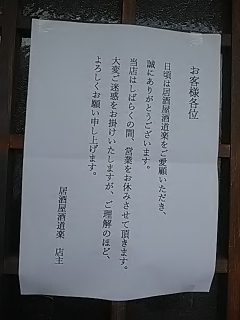 お客様各位
日頃は居酒屋酒道楽をご愛顧いただき、
誠にありがとうございます。
当店はしばらくの間、営業をお休みさせて頂きます。
大変ご迷惑をお掛けいたしますが、ご理解のほど、
よろしくお願い申し上げます。
居酒屋酒道楽 店主